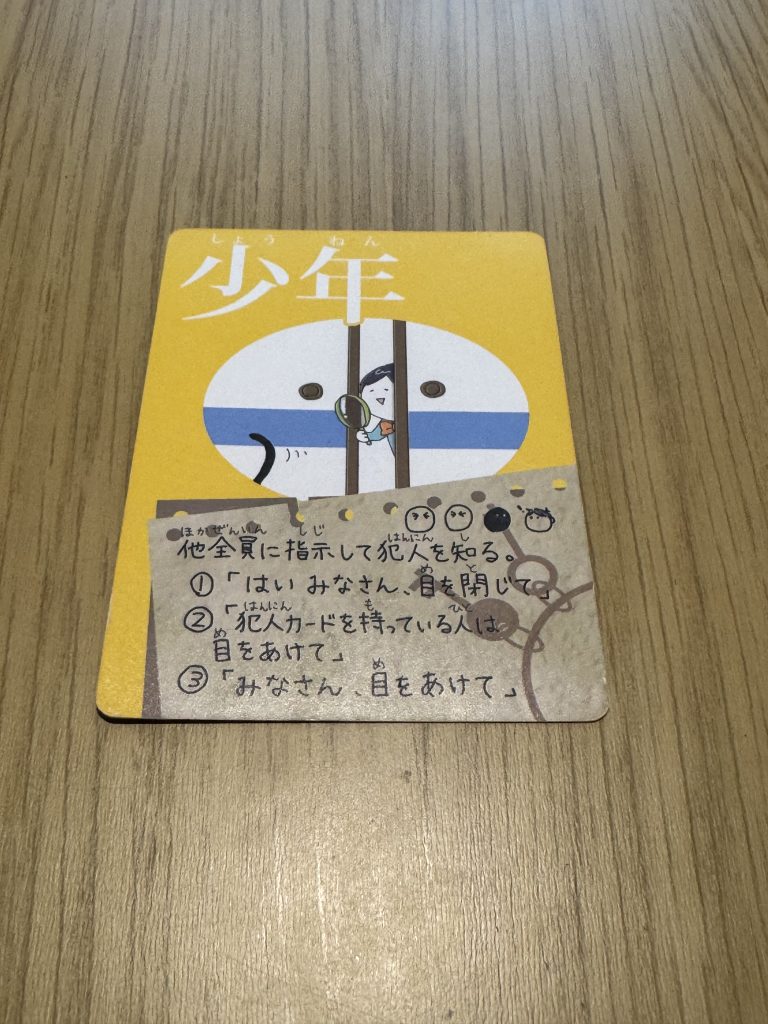 しょうねん
少年
ほかぜんいん しじ はんにん し
他全員に指示して犯人を知る。
め と
①「はい みなさん、目を閉じて」
はんにん も ひと
②「犯人カードを持っている人は
め
目をあけて」
め
③「みなさん、目をあけて」